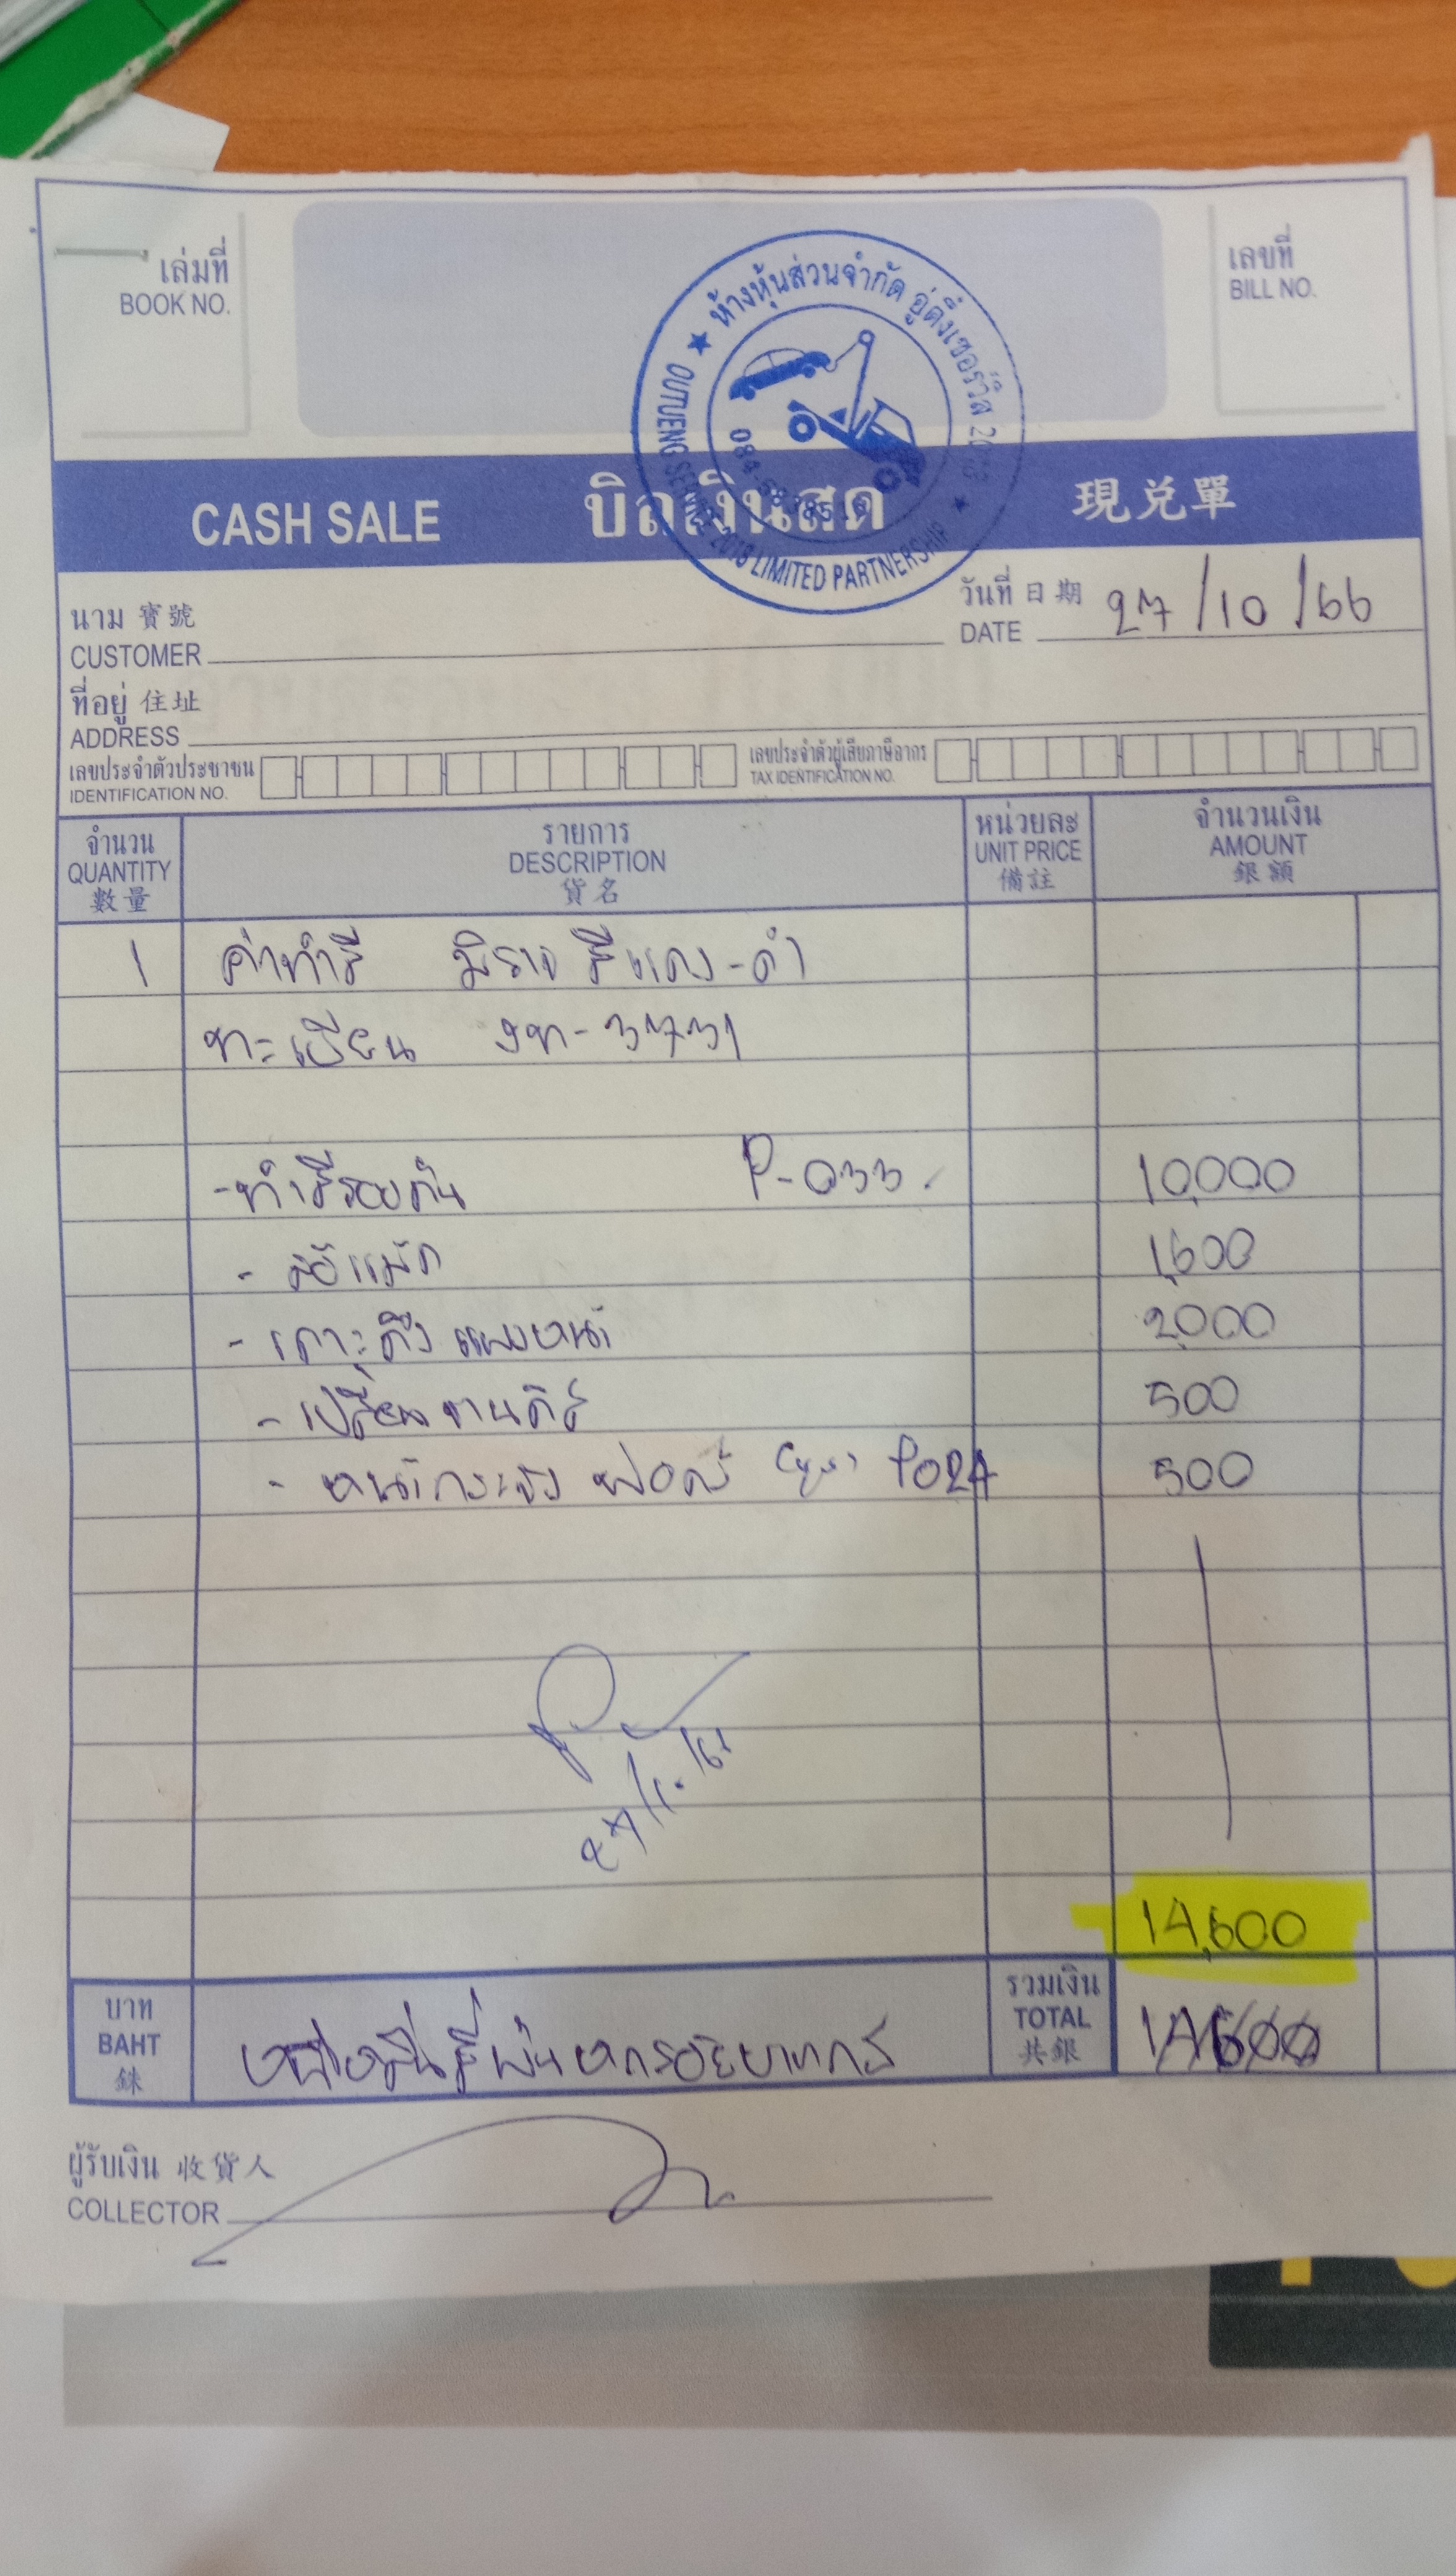 เล่มที่
BOOK NO.
เลขที่
BILL NO.
★ ห้างหุ้นส่วนจำกัด อู่ดึ๋งเซอร์วิส 2018 ★
SERVICE 2018 LIMITED PARTNERSHIP
CASH SALE บิลเงินสด 現兑單
นาม 寶號
CUSTOMER
วันที่ 日期 27/10/66
DATE
ที่อยู่ 住址
ADDRESS
เลขประจำตัวประชาชน
IDENTIFICATION NO.
เลขประจำตัวผู้เสียภาษีอากร
TAX IDENTIFICATION NO.
จำนวน
QUANTITY
數量
รายการ
DESCRIPTION
貨名
หน่วยละ
UNIT PRICE
備註
จำนวนเงิน
AMOUNT
銀額
1 ค่าทำสี มิราจ สีแดง-ดำ
ทะเบียน 3731
-ทำสีรอบคัน P-033. 10,000
- ล้อแม็ก 1,600
- เคาะดึง แผงหน้า 2,000
- เปลี่ยน 500
- หน้ากระจัง P024 500
14,600
บาท
BAHT
銖
หนึ่งหมื่นสี่พันหกร้อยบาท
รวมเงิน
TOTAL
共銀
14,600
ผู้รับเงิน 收貨人
COLLECTOR